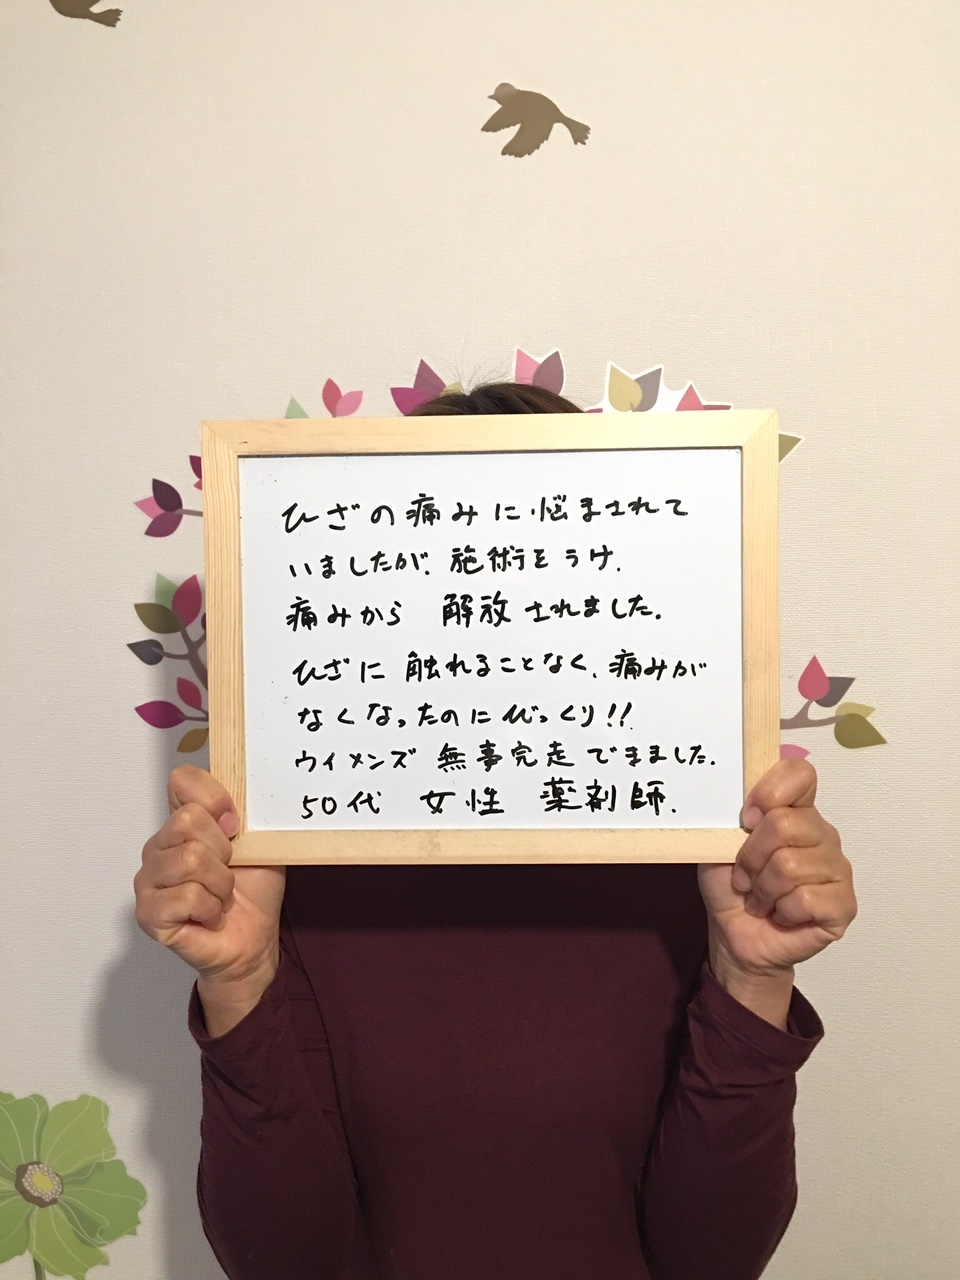 ひざの痛みに悩まされて
いましたが、施術をうけ、
痛みから 解放されました。
ひざに触れることなく、痛みが
なくなったのにびっくり!!
ウイメンズ 無事完走できました。
50代 女性 薬剤師.